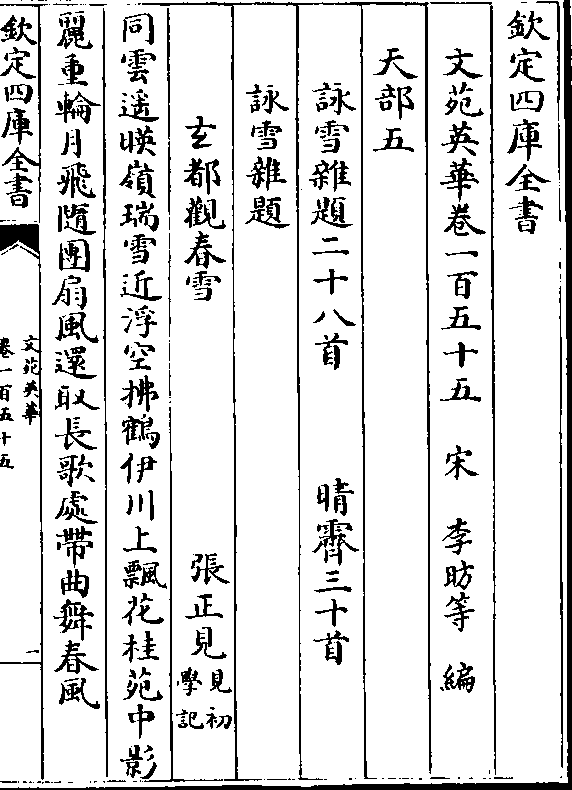 欽定四庫全書
文苑英華卷一百五十五　宋　李昉等　編
天部五
詠雪雜題二十八首　晴霽三十首
詠雪雜題
玄都觀春雪　張正見見初學記
同雲遥暎嶺瑞雪近浮空拂鶴伊川上飄花桂苑中影
麗重輪月飛隨團扇風還取長歌處帶曲舞春風
欽定四庫全書
文苑英華
卷一百五十五
一